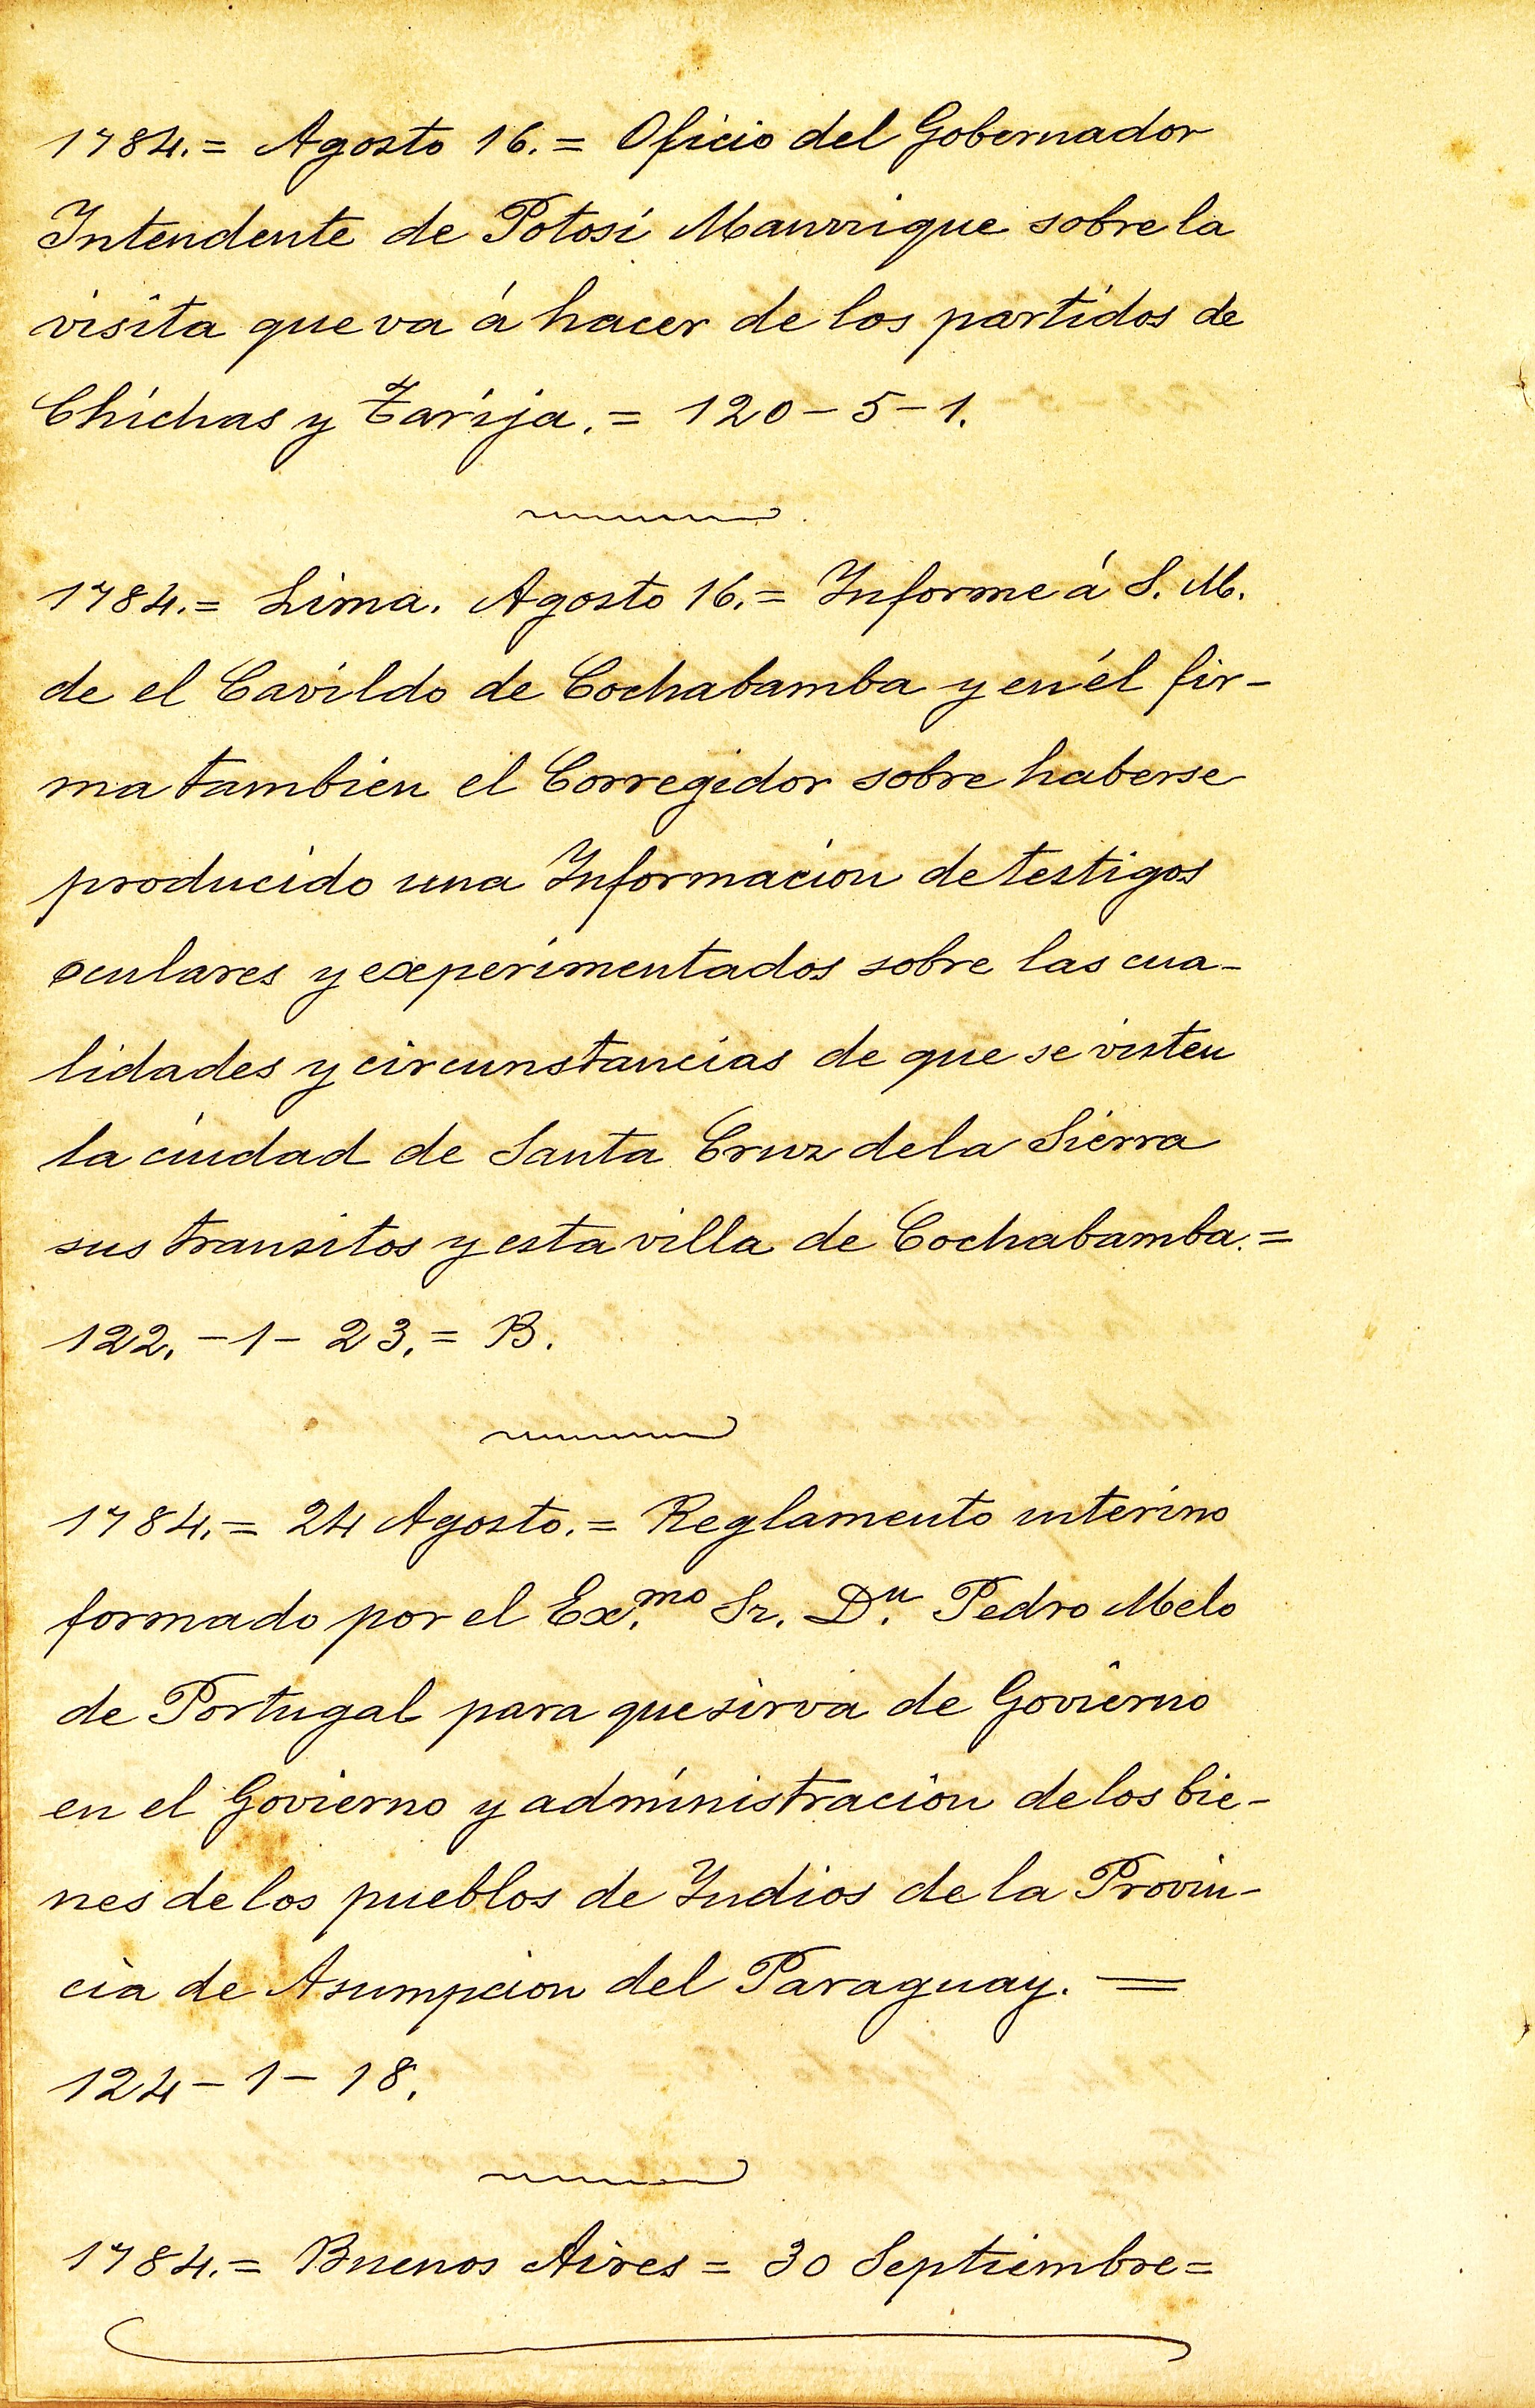 1784.= Agosto 16.= Oficio del Gobernador
Intendente de Potosí Manrrique sobre la
visita que va á hacer de los partidos de
Chichas y Tarija.= 120-5-1.
1784.= Lima. Agosto 16.= Informe á S. M.
de el Cavildo de Cochabamba y en él fir-
ma tambien el Corregidor sobre haberse
producido una Informacion de testigos
oculares y experimentados sobre las cua-
lidades y circunstancias de que se visten
la ciudad de Santa Cruz de la Sierra
sus transitos y esta villa de Cochabamba.=
122.-1-23.= B.
1784.= 24 Agosto.= Reglamento interino
formado por el Ex.mo Sr. D.n Pedro Melo
de Portugal para que sirva de Govierno
en el Govierno y administracion de los bie-
nes de los pueblos de Indios de la Provin-
cia de Asumpcion del Paraguay. =
124-1-18.
1784.= Buenos Aires = 30 Septiembre=